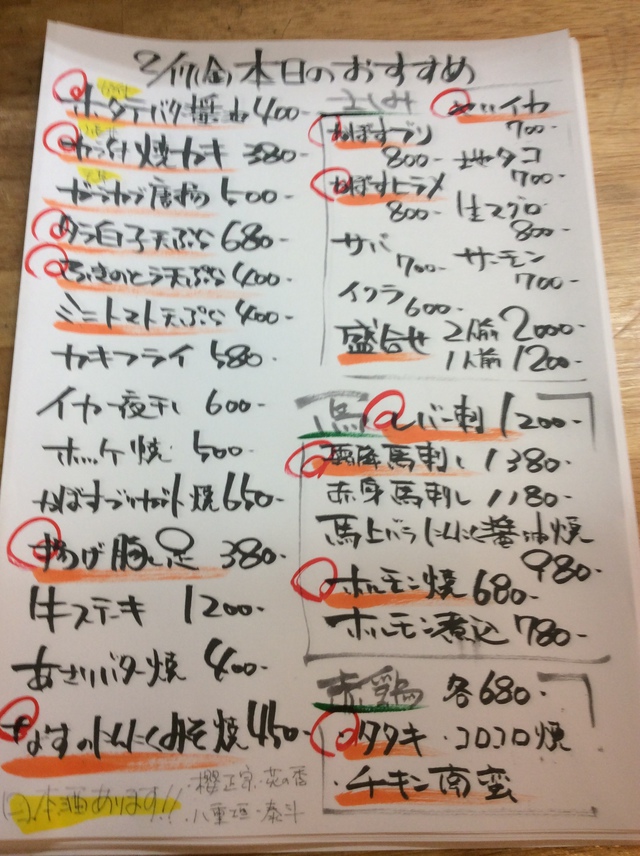 2/17(金)本日のおすすめ
ホタテバター醤油 400-
焼カキ 380-
唐揚 500-
タラ白子天ぷら 680-
ふきのとう天ぷら 400-
ミニトマト天ぷら 400-
カキフライ 580-
イカ一夜干し 600-
ホッケ焼 500-
かぼすブリカマ焼 650-
揚げ豚足 380-
牛ステーキ 1200-
あさりバター焼 400-
なすのにんにくみそ焼 450-
日本酒あります!!
・櫻正宗・荒の香
・八重垣・泰斗
さしみ
かぼすブリ 800-
かぼすヒラメ 800-
サバ 700-
イクラ 600-
イカ 700-
地タコ 700-
生マグロ 800-
サーモン 700-
盛合せ 2人前 2000-
1人前 1200-
馬
レバー刺 1200-
霜降馬刺し 1380-
赤身馬刺し 1180-
馬上バラにんにく醤油焼 980-
ホルモン焼 680-
ホルモン煮込 780-
赤鶏 各680-
・タタキ ・コロコロ焼
・チキン南蛮